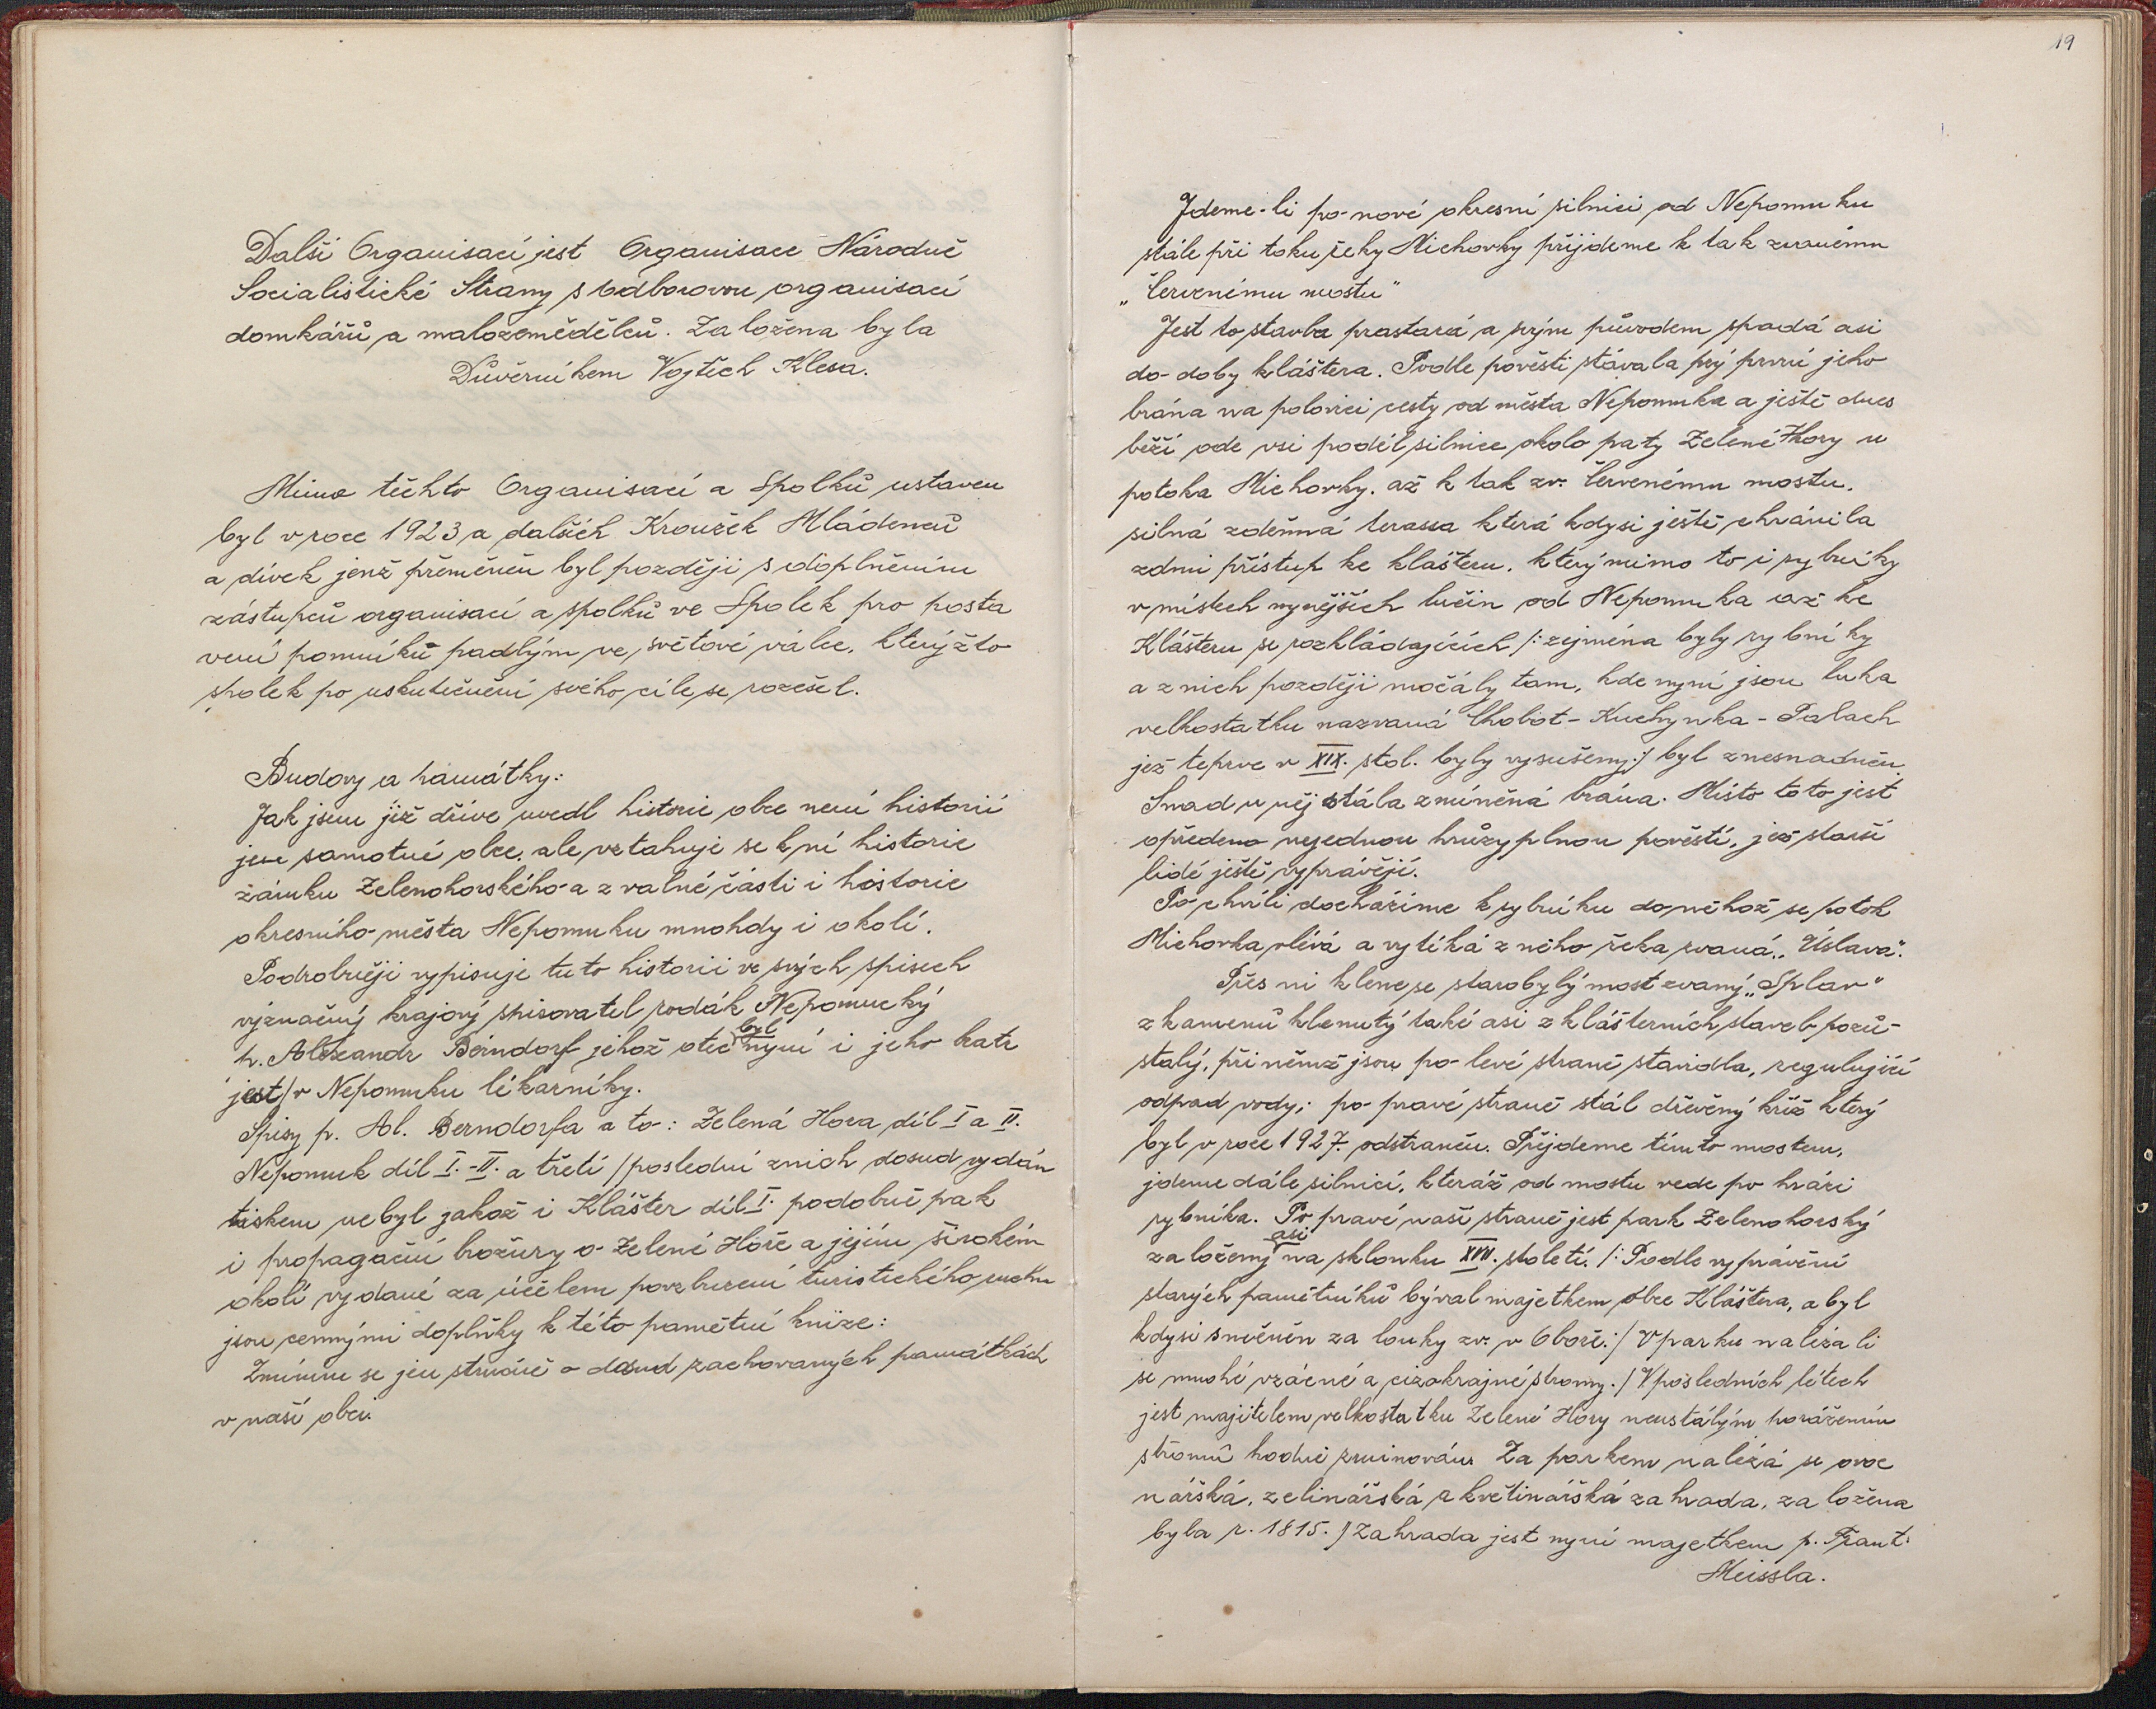 Další Organisací jest Organisace Národně
Socialistické Strany s Odborovou organisací
domkářů a malozemědělců. Založena byla
Důvěrníkem Vojtěch Klesa.
Mimo těchto Organisací a Spolků ustaven
byl v roce 1923 a dalších Kroužek Mládenců
a dívek jenž přeměněn byl později s doplněním
zástupců organisací a spolků ve Spolek pro posta
vení pomníků padlým ve světové válce, kterýžto
spolek po uskutečnění svého cíle se rozešel.
Budovy a památky:
Jak jsem již dříve uvedl historie obce není historií
jen samotné obce, ale vztahuje se k ní historie
zámku Zelenohorského a z valné části i historie
okresního města Nepomuku mnohdy i okolí.
Podrobněji vypisuje tuto historii ve svých spisech
význačný krajový spisovatel rodák Nepomucký
p. Alexandr Berndorf jehož otec byl nyní i jeho bratr
jest / v Nepomuku lékárníky.
Spisy p. Al. Berndorfa a to: Zelená Hora díl I a II.
Nepomuk díl I.-II. a třetí / poslední z nich dosud vydán
tiskem nebyl jakož i Klášter díl I. podobně pak
i propagační brožury o Zelené Hoře a jejím širokém
okolí vydané za účelem povzbuzení turistického ruchu
jsou cennými doplňky k této pamětní knize:
Zmíním se jen stručně o dosud zachovaných památkách
v naší obci.
19
Jdeme-li po nové okresní silnici od Nepomuku
stále při toku řeky Michovky přijdeme k tak zvanému
„Červenému mostu"
Jest to stavba prastará a svým původem spadá asi
do doby kláštera. Podle pověsti stávala prý první jeho
brána na polovici cesty od města Nepomuka a ještě dnes
běží ode vsi podél silnice okolo paty Zelené Hory u
potoka Michovky. až k tak zv. Červenému mostu.
silná zděnná terassa která kdysi ještě chránila
zdmi přístup ke klášteru. který mimo to i rybníky
v místech nynějších lučin od Nepomuka až ke
Klášteru se rozkládajících /: zejména byly rybníky
a z nich později močály tam, kde nyní jsou luka
velkostatku nazvaná Chobot - Kuchynka - Palach
jež teprve v XIX. stol. byly vysušeny:/ byl znesnadněn.
Snad u něj stála zmíněná brána. Místo toto jest
opředeno nejednou hrůzyplnou pověstí, jež starší
lidé ještě vyprávějí.
Po chvíli docházíme k rybníku do něhož se potok
Michovka vlévá a vytéká z něho řeka zvaná „Úslava".
Přes ni klene se starobylý most zvaný „Splav"
z kamenů klenutý také asi z klášterních staveb pozů-
stalý, při němž jsou po levé straně stavidla, regulující
odpad vody; po pravé straně stál dřevěný kříž který
byl v roce 1927. odstraněn. Přejdeme tímto mostem,
jdeme dále silnicí, kteráž od mostu vede po hrázi
rybníka. Po pravé naší straně jest park Zelenohorský
založený asi na sklonku XVII. století. /: Podle vyprávění
starých pamětníků býval majetkem obce Kláštera, a byl
kdysi směněn za louky zv. v Oboře:/ V parku nalézali
se mnohé vzácné a cizokrajné stromy./ V posledních létech
jest majitelem velkostatku Zelené Hory neustálým porážením
stromů hodně zruinován. Za parkem nalézá se ovoc
nářská, zelinářská a květinářská zahrada, založena
byla r. 1815. / Zahrada jest nyní majetkem p. Frant.
Meissla.